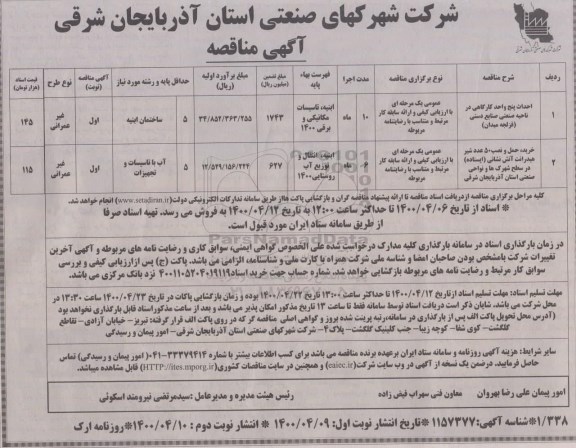 شرکت شهرکهای صنعتی استان آذربایجان شرقی
آگهی مناقصه
ردیف	شرح مناقصه	نوع برگزاری مناقصه	مدت اجرا	فهرست بهاء پایه	مبلغ تضمین (میلیون ریال)	مبلغ برآورد اولیه (ریال)	حداقل پایه و رشته مورد نیاز	آگهی مناقصه (نوبت)	نوع طرح	قیمت اسناد (هزار تومان)
۱	احداث پنج واحد کارگاهی در ناحیه صنعتی صنایع دستی (قرلجه میدان)	عمومی یک مرحله ای با ارزیابی کیفی و ارائه سابقه کار مرتبط و متناسب با رضایتنامه مربوطه	۱۰ ماه	ابنیه، تاسیسات مکانیکی و برقی ۱۴۰۰	۱۷۴۳	۳۴/۸۵۲/۳۶۳/۲۵۵	۵ ساختمان ابنیه	اول	غیر عمرانی	۱۴۵
۲	خرید، حمل و نصب ۵۰ عدد شیر هیدرانت آتش نشانی (ایستاده) در سطح شهرک ها و نواحی صنعتی استان آذربایجان شرقی	عمومی یک مرحله ای با ارزیابی کیفی و ارائه سابقه کار مرتبط و متناسب با رضایتنامه مربوطه	۶ ماه	ابنیه، انتقال و توزیع آب روستایی ۱۴۰۰	۶۲۷	۱۲/۵۲۹/۱۵۶/۲۲۴	۵ آب یا تاسیسات و تجهیزات	اول	غیر عمرانی	۱۱۵
کلیه مراحل برگزاری مناقصه ازدریافت اسناد مناقصه تا ارائه پیشنهاد مناقصه گران و بازگشایی پاکت هااز طریق سامانه تدارکات الکترونیکی دولت(www.setadiran.ir) انجام خواهد شد.
* اسناد از تاریخ ۱۴۰۰/۰۴/۰۶ تا حداکثر ساعت ۱۲:۰۰ به تاریخ ۱۴۰۰/۰۴/۱۲ به فروش می رسد. تهیه اسناد صرفا
از طریق سامانه ستاد ایران مورد قبول است.
در زمان بارگذاری اسناد در سامانه بارگذاری کلیه مدارک درخواست شده علی الخصوص گواهی ایمنی، سوابق کاری و رضایت نامه های مربوطه و آگهی آخرین
تغییرات شرکت بامشخص بودن صاحبان امضا و شناسه ملی شرکت همراه با کارت ملی و شناسنامه، الزامی می باشد. پاکت (ج) پس ازارزیابی کیفی و بررسی
سوابق کار مرتبط و رضایت نامه های مربوطه بازگشایی خواهد شد. شماره حساب جهت خرید اسناد۴۰۰۱۱۰۵۲۰۴۰۱۹۱۱۹ نزد بانک مرکزی می باشد.
مهلت تسلیم اسناد: مهلت تسلیم اسناد ازتاریخ ۱۴۰۰/۰۴/۱۲ تا حداکثر ساعت ۱۳:۰۰ تاریخ ۱۴۰۰/۰۴/۲۲ بوده و زمان بازگشایی پاکات در تاریخ ۱۴۰۰/۰۴/۲۳ ساعت ۱۳:۳۰ در
محل شرکت می باشد. شایان ذکر است دریافت اسناد توسط سامانه فقط تا ساعت ۱۳ تاریخ مذکور امکان پذیر می باشد و بعد از ساعت مذکوراسناد قابل بارگذاری نخواهد بود
(آدرس محل تحویل پاکت الف پس از بارگذاری در سامانه،رتبه پرینت شده بروز و گواهی اصلی مناقصه گر که در روی پاکت الف قرار گرفته: تبریز- خیابان آزادی- تقاطع
گلگشت- کوی شفا- کوچه زیبا- جنب کلینیک گلگشت- پلاک۴- شرکت شهرکهای صنعتی استان آذربایجان شرقی- امور پیمان و رسیدگی
سایر شرایط: هزینه آگهی روزنامه و سامانه ستاد ایران برعهده برنده مناقصه می باشد برای کسب اطلاعات بیشتر با شماره ۳۳۳۷۹۴۱۴-۰۴۱ (امور پیمان و رسیدگی) تماس
حاصل فرمایید. درضمن یک نسخه از آگهی در وب سایت شرکت(eaiec.ir) و همچنین در سایت مناقصات کشوری(HTTP://ites.mporg.ir) قابل مشاهده میباشد.
امور پیمان علی رضا بهروان	معاون فنی سهراب فیض زاده	رئیس هیئت مدیره و مدیرعامل: سیدمرتضی نیرومند اسکوئی
۱/۳۳۸*شناسه آگهی: ۱۱۵۷۳۷۷*تاریخ انتشار نوبت اول: ۱۴۰۰/۰۴/۰۹ * انتشار نوبت دوم : ۱۴۰۰/۰۴/۱۰*روزنامه ارک
ParsNamadData